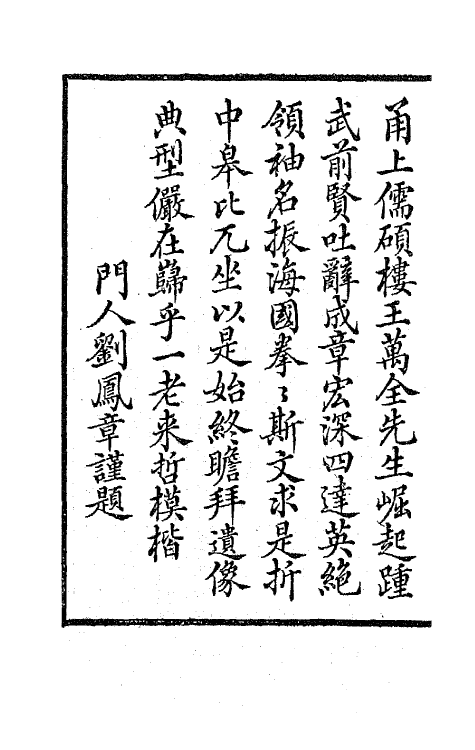 甬上儒碩樓王萬全先生崛起踵
武前賢吐辭成章宏深四達英絶
領袖名振海國拳〻斯文求是折
中皋比兀坐以是始終瞻拜遺像
典型儼在巋乎一老来哲模楷
門人劉鳳章謹題